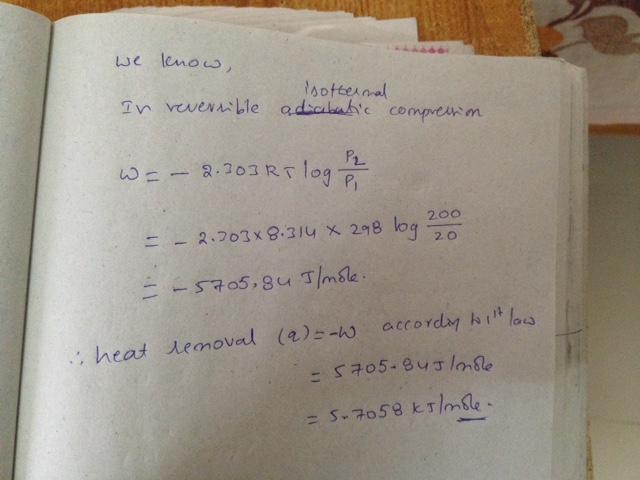 we know,
isothermal
In reversible adiabatic compression
W = - 2.303 RT log P2/P1
= - 2.303 x 8.314 x 298 log 200/20
= - 5705.84 J/mole.
∴ heat removal (q) = -W according to 1st law
= 5705.84 J/mole
= 5.7058 KJ/mole.